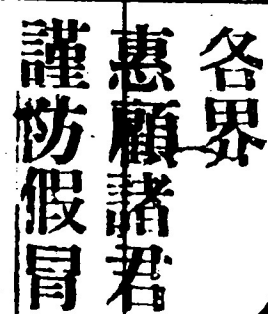 各界
惠顧諸君
謹防假冒